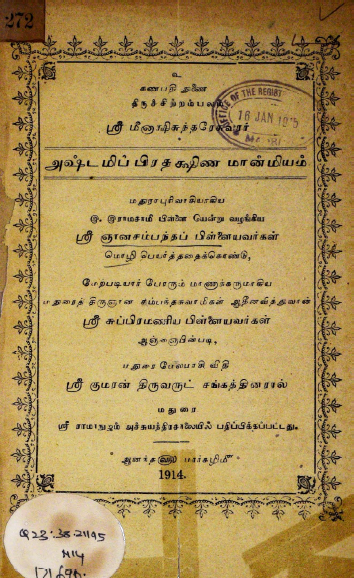 272
உ
கணபதி துணை
திருச்சிற்றம்பலம்
OFFICE OF THE REGIST
16 JAN 19
ஸ்ரீ மீனாக்ஷிசுந்தரேசுவரர்
அஷ்டமிப்பிரதக்ஷிண மான்மியம்
மதுராபுரிவாசியாகிய
இ. இராமசாமி பிள்ளை யென்று வழங்கிய
ஸ்ரீ ஞானசம்பந்தப் பிள்ளையவர்கள்
மொழி பெயர்த்ததைக்கொண்டு,
மேற்படியார் பேரரும் மாணாக்கருமாகிய
மதுரைத் திருஞான சம்பந்தசுவாமிகள் ஆதீனவித்துவான்
ஸ்ரீ சுப்பிரமணிய பிள்ளையவர்கள்
ஆஞ்ஞைபின்படி,
மதுரை மேலமாசி வீதி
ஸ்ரீ குமரன் திருவருட் சங்கத்தினரால்
மதுரை
ஸ்ரீ ராமாநுஜம் அச்சுயந்திரசாலையில் பதிப்பிக்கப்பட்டது.
ஆனந்த௵ மார்கழி௴
1914.
Q23:38.21195
M14